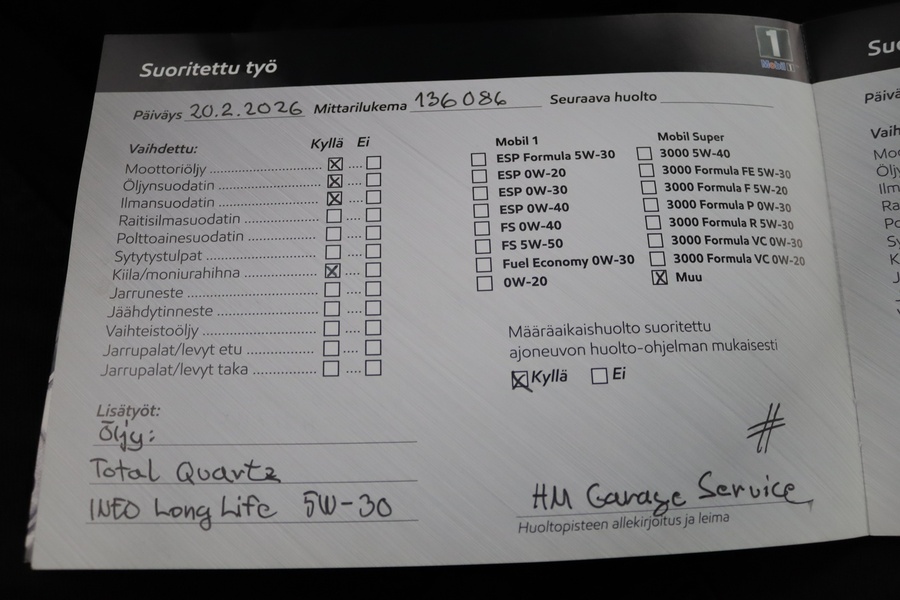 Suoritettu työ
1
Mobil 1
Päiväys 20.2.2026 Mittarilukema 136 086 Seuraava huolto
Vaihdettu: Kyllä Ei
Moottoriöljy
Öljynsuodatin
Ilmansuodatin
Raitisilmasuodatin
Polttoainesuodatin
Sytytystulpat
Kiila/moniurahihna
Jarruneste
Jäähdytinneste
Vaihteistoöljy
Jarrupalat/levyt etu
Jarrupalat/levyt taka
Lisätyöt:
Öljy:
Total Quartz
INEO Long Life 5W-30
Mobil 1
ESP Formula 5W-30
ESP 0W-20
ESP 0W-30
ESP 0W-40
FS 0W-40
FS 5W-50
Fuel Economy 0W-30
0W-20
Mobil Super
3000 5W-40
3000 Formula FE 5W-30
3000 Formula F 5W-20
3000 Formula P 0W-30
3000 Formula R 5W-30
3000 Formula VC 0W-30
3000 Formula VC 0W-20
Muu
Määräaikaishuolto suoritettu
ajoneuvon huolto-ohjelman mukaisesti
Kyllä Ei
#
HM Garage Service
Huoltopisteen allekirjoitus ja leima